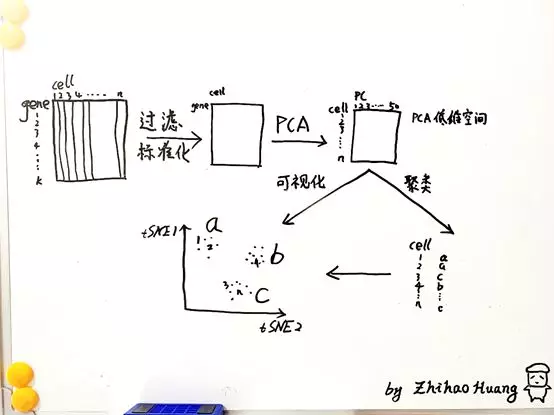 cell
1 2 3 4 ····· n
gene
1
2
3
4
⋮
k
过滤
标准化
cell
gene
PCA
PC
1 2 3 ··· 50
cell
1
2
3
⋮
n
PCA低维空间
可视化
聚类
tSNE1
a
1
2
b
4
c
3
n
tSNE2
cell
1 a
2 a
3 c
4 b
⋮ ⋮
n c
by Zhihao Huang